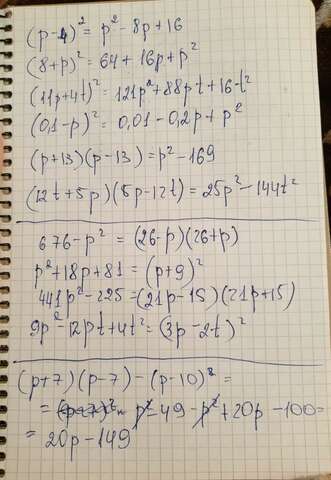 (p-4)² = p² - 8p + 16
(8+p)² = 64 + 16p + p²
(11p+4t)² = 121p² + 88pt + 16t²
(0,1-p)² = 0,01 - 0,2p + p²
(p+13)(p-13) = p² - 169
(12t+5p)(5p-12t) = 25p² - 144t²
676 - p² = (26-p)(26+p)
p² + 18p + 81 = (p+9)²
441p² - 225 = (21p-15)(21p+15)
9p² - 12pt + 4t² = (3p-2t)²
(p+7)(p-7) - (p-10)² =
= p² - 49 - p² + 20p - 100 =
= 20p - 149